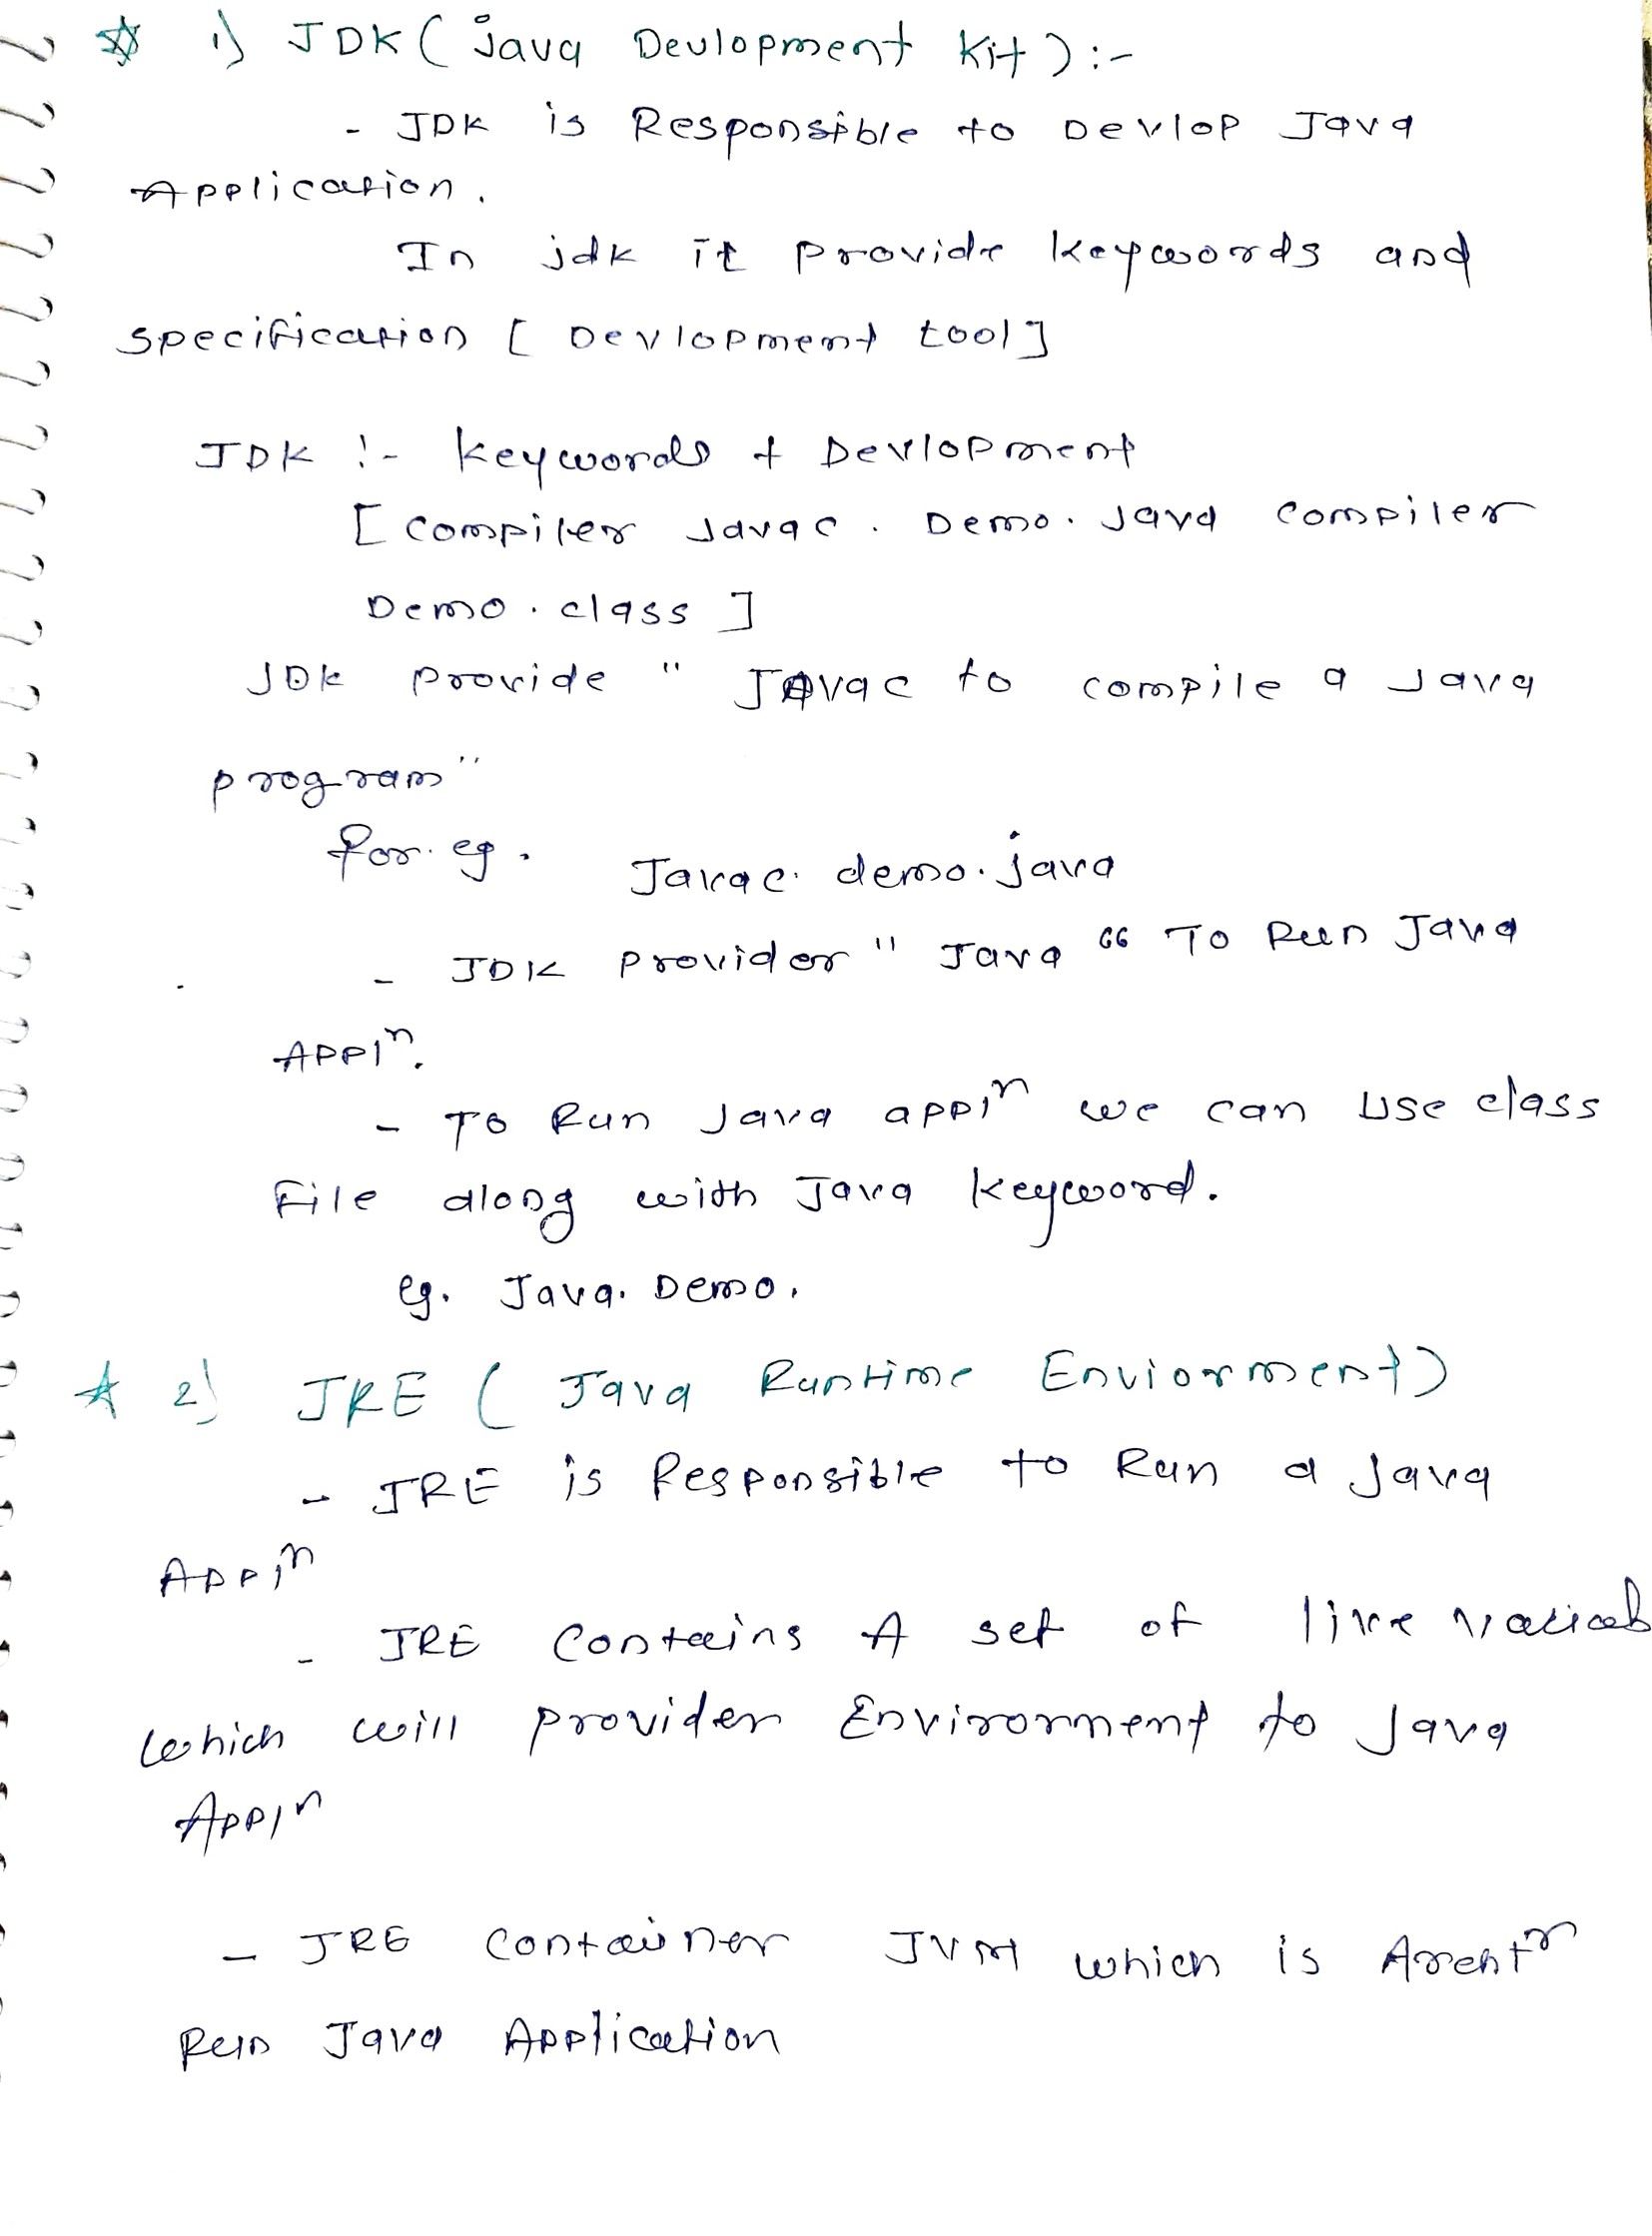 ☆ 1) JDK ( Java Devlopment Kit ) :-
- JDK is Responsible to Devlop Java
Application.
In jdk it provide keywords and
specification [ Devlopment tool ]
JDK :- keywords + Devlopment
[ compiler Javac . Demo. Java compiler
Demo . class ]
JDK provide " Javac to compile a Java
program "
for. eg . Javac. demo. java
- JDK provider " Java " To Run Java
Appln.
- To Run Java appln we can use class
File along with Java keyword.
eg. Java. Demo.
☆ 2) JRE ( Java Runtime Enviorment )
- JRE is Responsible to Run a Java
Appln
- JRE Contains A set of
which will provider Environment to Java
Appln
- JRE Container JVM which is
Run Java Application